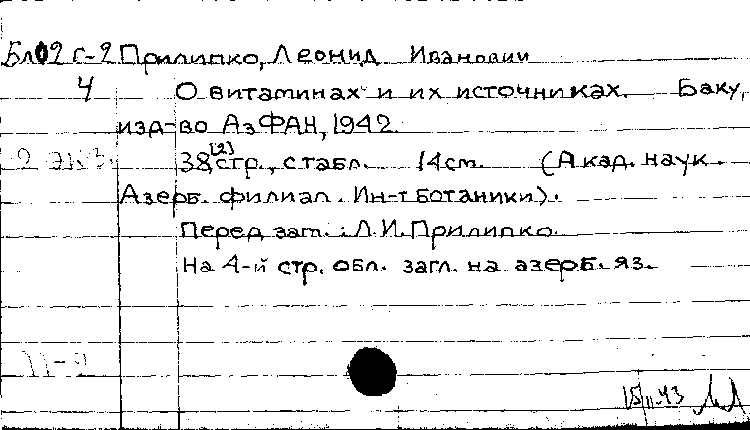 Бл02 Г-2 Прилипко, Леонид Иванович
4 О витаминах и их источниках. Баку,
изд-во АзФАН, 1942.
2 экз. 38,[2] стр., с табл. 14 см. (Акад. наук.
Азерб. филиал. Ин-т ботаники).
Перед заг.: Л.И. Прилипко.
На 4-й стр. обл. загл. на азерб. яз.
15/II-43